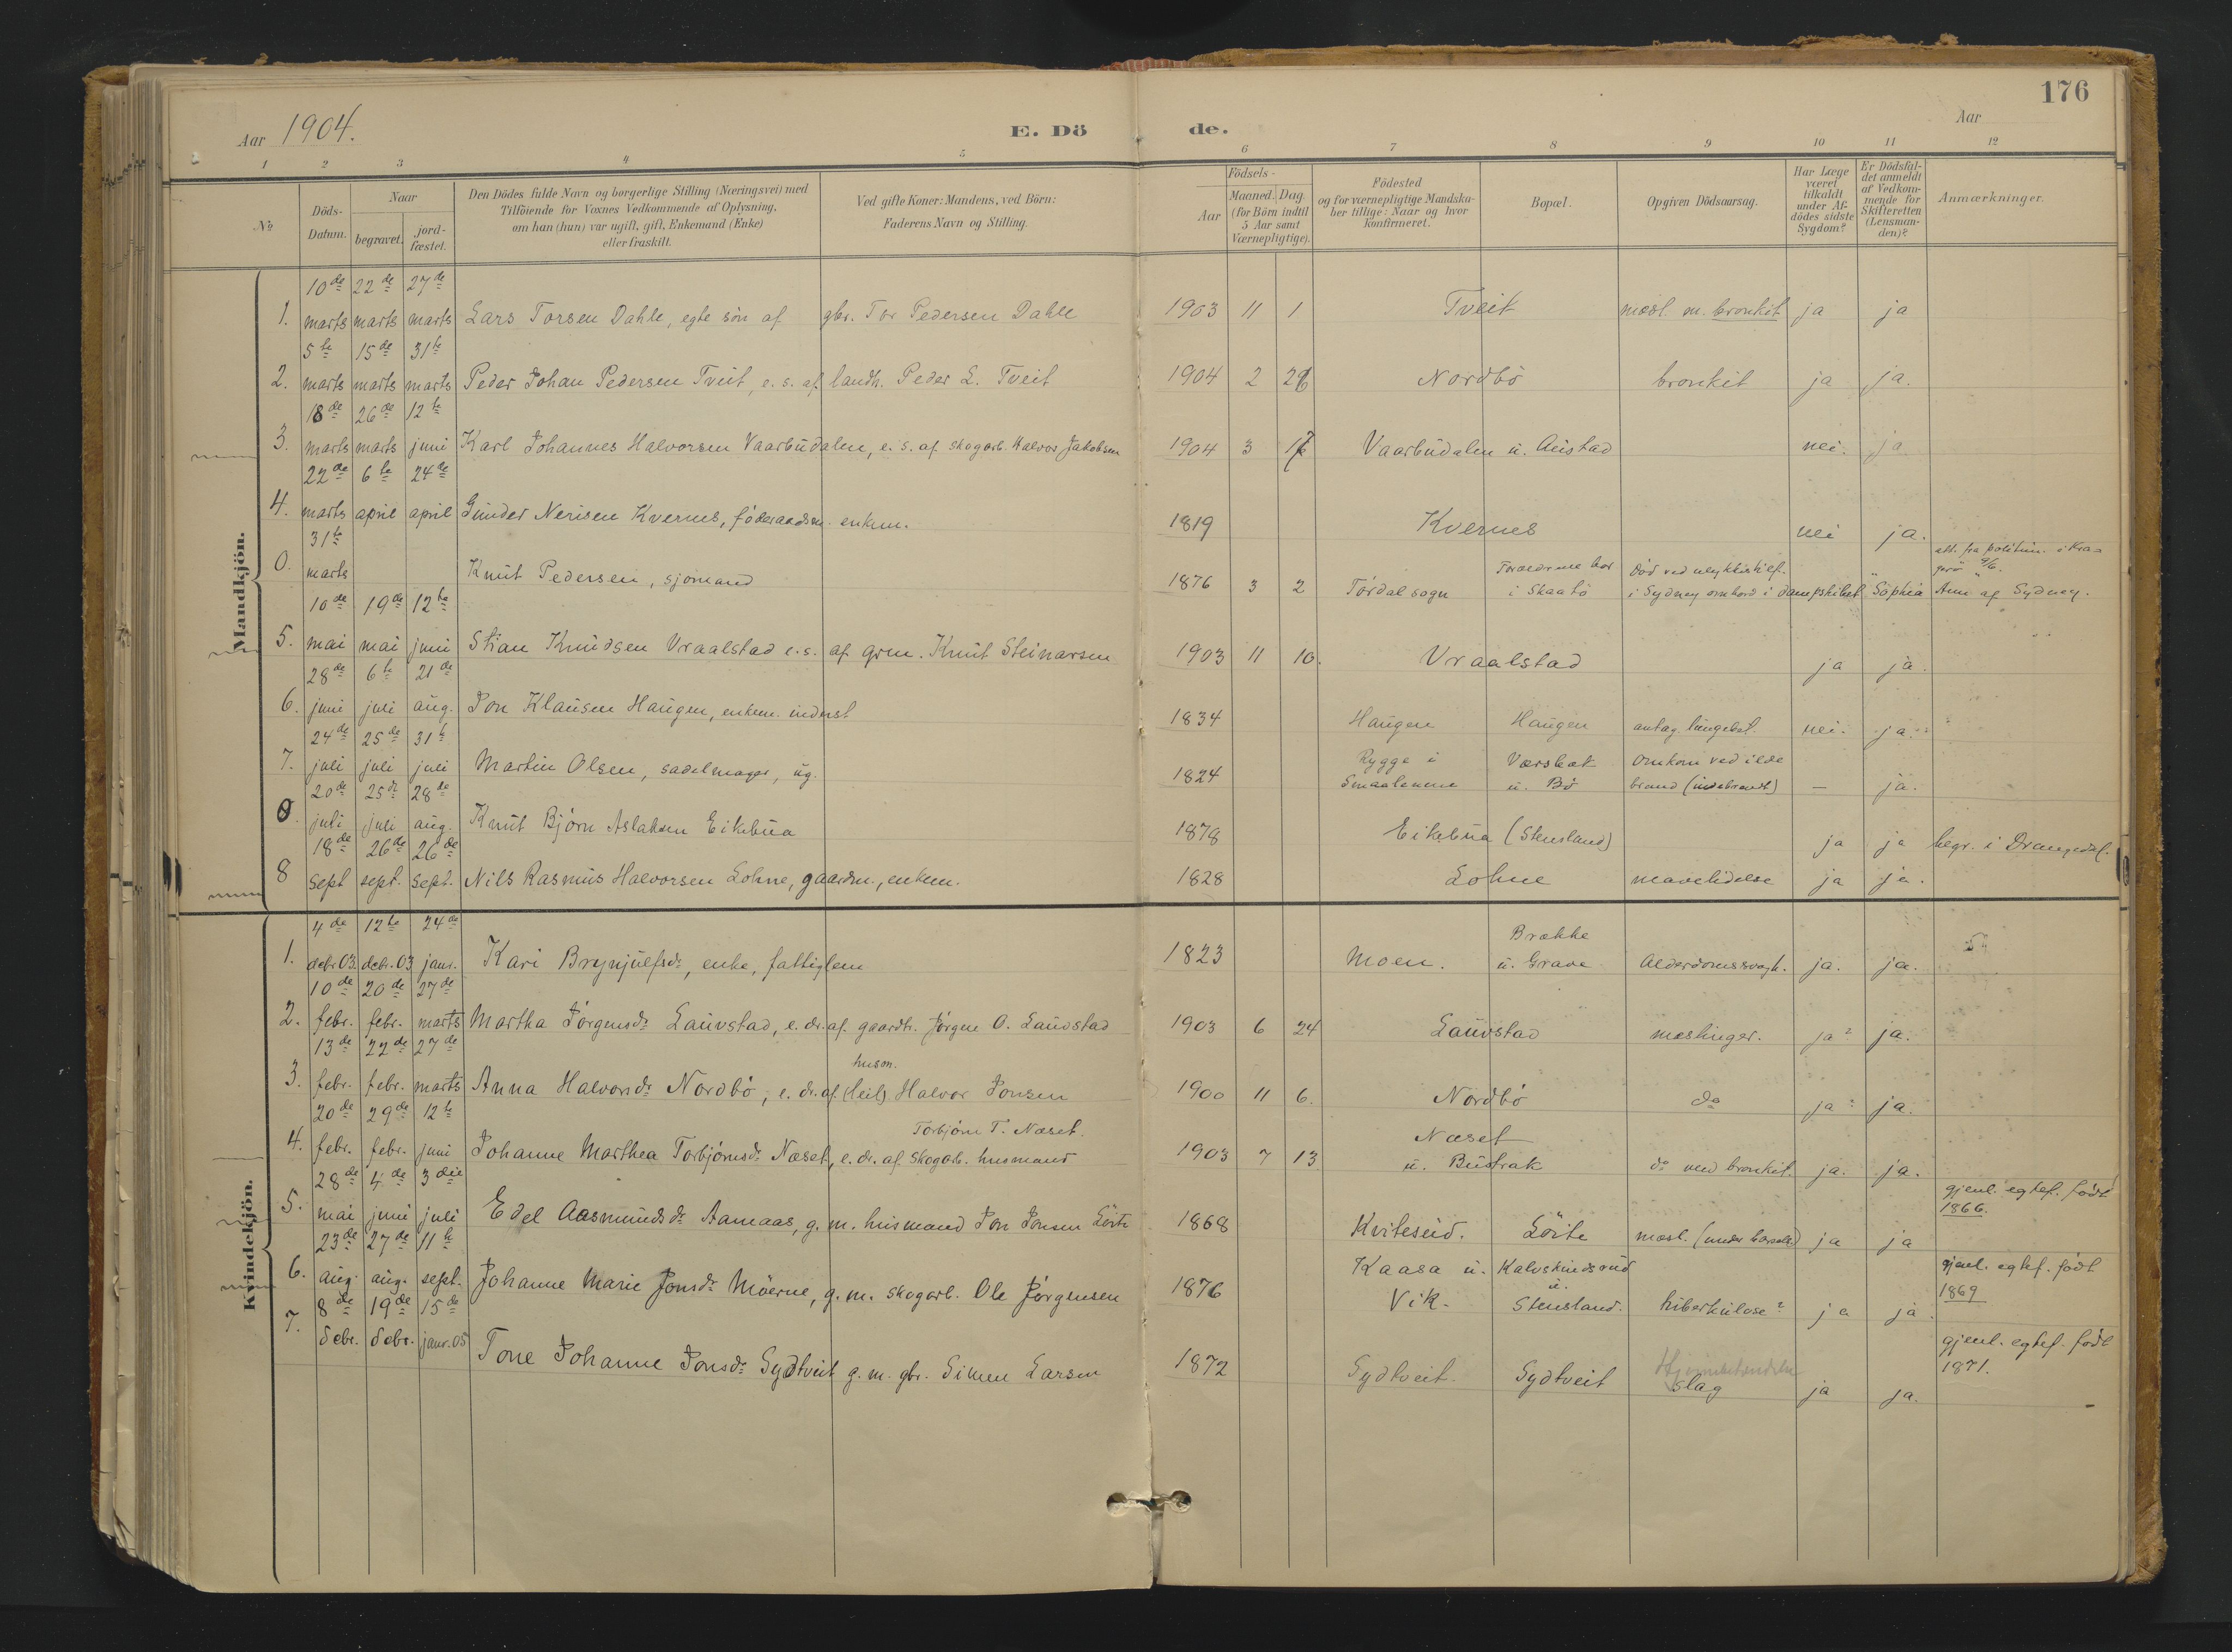 176
Aar 1904.
E. Dö de.
Aar
1 2 3 4 5 6 7 8 9 10 11 12
No
Döds-Datum.
Naar
begravet.
jord-fæstet.
Den Dödes fulde Navn og borgerlige Stilling (Næringsvei) med
Tilföiende for Voxnes Vedkommende af Oplysning,
om han (hun) var ugift, gift, Enkemand (Enke)
eller fraskilt.
Ved gifte Koner: Mandens, ved Börn:
Faderens Navn og Stilling.
Födsels-
Aar
Maaned. Dag.
(for Börn indtil
5 Aar samt
Værnepligtige).
Födested
og for værnepligtige Mandska-
ber tillige: Naar og hvor
konfirmeret.
Bopæl.
Opgiven Dödsaarsag.
Har Læge
været
tilkaldt
under Af-
dödes sidste
Sygdom?
Er Dödsfal-
det anmeldt
af Vedkom-
mende for
Skifteretten
(Lensman-
den)?
Anmærkninger.
Mandkjön.
10de 22de 27de
1. marts marts marts Lars Torsen Dahle, egte sön af gbr. Tor Pedersen Dahle 1903 11 1 Tveit mesl. m. bronkit ja ja
5te 15de 31te
2. marts marts marts Peder Johan Pedersen Tveit, e. s. af landh. Peder L. Tveit 1904 2 26 Nordbö bronkit ja ja.
18de 26de 12te
3. marts marts juni Karl Johannes Halvorsen Vaarbudalen, e. s. af skogarb. Halvor Jakobsen 1904 3 Vaarbudalen u. Austad nei. ja.
22de 6te 24de
4. marts april april Gunder Nerisen Kvernes, föderaadsm. enkem. 1819 Kvernes nei ja.
31te
0. marts Knut Pedersen, sjömand 1876 3 2 Tördal sogn Forældrene bor i Skaatö Död ved ulykkestilf. i Sydney ombord i dampskibet "Sophia Ann" af Sydney.
att. fra politim. i Kra-
gerö 9/6.
10de 19de 12te
5. mai mai juni Stian Knudsen Vraalstad e. s. af grm. Knut Steinarsen 1903 11 10. Vraalstad ja ja.
28de 6te 21de
6. juni juli aug. Jon Klausen Haugen, enkem. inderst 1834 Haugen Haugen antag. lungebet. nei. ja.
24de 25de 31te
7. juli juli juli Martin Olsen, sadelmager, ug. 1824 Rygge i Smaalenene u. Bö Omkom ved ildebrand (indebrændt) — ja.
20de 25de 28de
0. juli juli aug. Knut Björn Aslaksen Eikebua 1878 Eikebua (Stensland) ja ja begr. i Drangedal.
18de 26de 26de
8 sept sept. sept. Nils Rasmus Halvorsen Lohne, gaardm., enkem. 1828 Lohne mavelidelse ja ja.
Kvindekjön.
4de 12te 24de
1. debr. 03. debr. 03 janr. Kari Brynjulfsdr, enke, fattiglem 1823 Moen. Brække u. Grave Alderdomssvagh. ja. ja.
10de 20de 27de
2. febr. febr. marts Martha Jörgensdr Lauvstad, e. dr. af gaardbr. Jörgen O. Lauvstad 1903 6 24 Lauvstad meslinger. ja? ja.
13de 22de 27de
3. febr. febr. marts Anna Halvorsdr Nordbö, e. dr. af (leil) husm. Halvor Jonsen 1900 11 6. Nordbö do ja? ja.
20de 29de 12te
4. febr. febr. juni Johanne Marthea Torbjörnsdr Næset, e. dr. af skogarb. husmand Torbjörn T. Næset. 1903 7 13 Næset u. Bustrak do med bronkit. ja. ja.
28de 4de 3die
5. mai juni juli Edel Aasmundsdr Aamaas, g. m. husmand Jon Jonsen Löite 1868 Kviteseid. Löite mesl. (under barsel) ja ja
gjenl. egtef. födt
1866.
23de 27de 11te
6. aug. aug. sept. Johanne Marie Jonsdr Möerne, g. m. skogarb. Ole Jörgensen 1876 Kaasa u. Vik. Kalvskindsrud u. Stensland. tuberkulose? ja ja.
gjenl. egtef. födt
1869
8de 19de 15de
7. debr. debr. janr. 05 Tone Johanne Jonsdr Sydtveit g. m. gbr. Simen Larsen 1872 Sydtveit. Sydtveit slag ja ja.
gjenl. egtef. födt
1871.